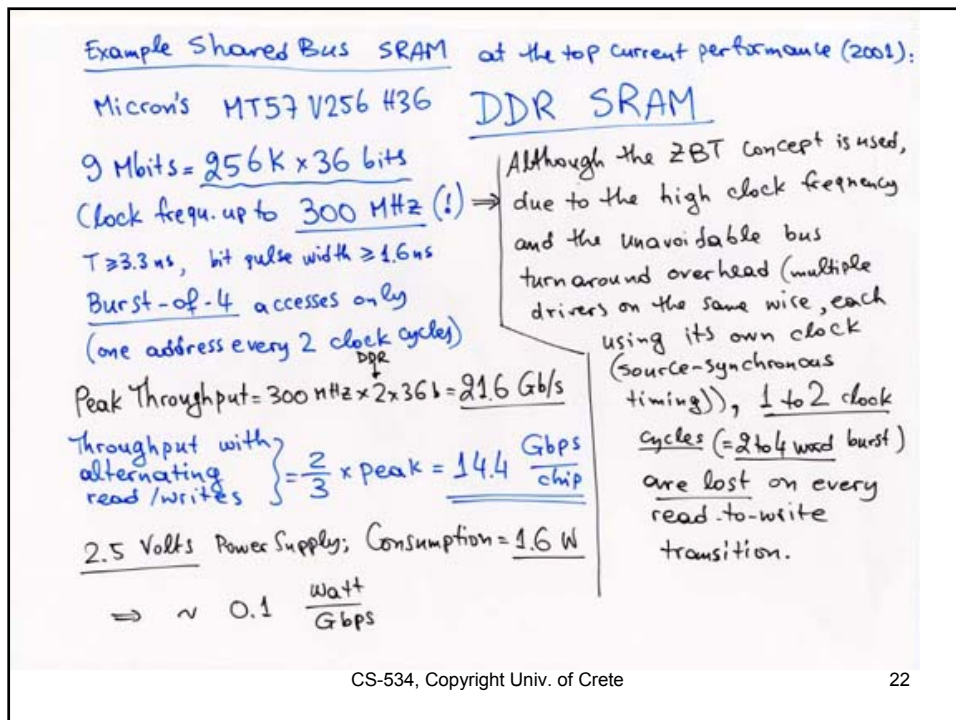 Example Shared Bus SRAM at the top current performance (2001):
Micron's MT57 V256 H36 DDR SRAM
9 Mbits = 256K x 36 bits
Clock frequ. up to 300 MHz (!) ⇒
T ≥ 3.3 ns, bit pulse width ≥ 1.6 ns
Burst-of-4 accesses only
(one address every 2 clock cycles)
DDR
↓
Peak Throughput = 300 MHz × 2 x 36 b = 21.6 Gb/s
Throughput with
alternating
read/writes } = 2/3 × peak = 14.4 Gbps/chip
2.5 Volts Power Supply; Consumption = 1.6 W
⇒ ~ 0.1 Watt/Gbps
Although the ZBT concept is used,
due to the high clock frequency
and the unavoidable bus
turnaround overhead (multiple
drivers on the same wire, each
using its own clock
(source-synchronous
timing)), 1 to 2 clock
cycles (= 2 to 4 word burst)
are lost on every
read-to-write
transition.
CS-534, Copyright Univ. of Crete 22